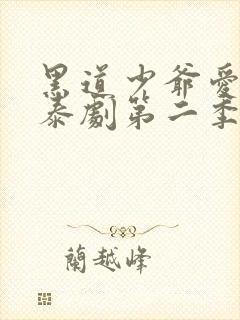 黑道少爺愛
泰劇第二季
蘭越峰